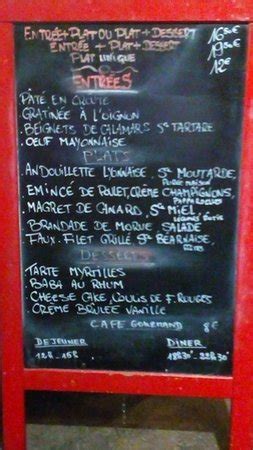 ENTRÉE+PLAT OU PLAT+DESSERT 16,50€
ENTRÉE + PLAT + DESSERT 19,50€
PLAT UNIQUE 12€
ENTRÉES
PÂTÉ EN CROUTE
GRATINÉE À L'OIGNON
BEIGNETS DE CALAMARS Sce TARTARE
OEUF MAYONNAISE
PLATS
ANDOUILLETTE LYONNAISE, Sce MOUTARDE,
PURÉE MAISON
EMINCÉ DE POULET, CRÈME CHAMPIGNONS,
MAGRET DE CANARD, Sce MIEL,
BRANDADE DE MORUE, SALADE
FAUX-FILET GRILLÉ Sce BÉARNAISE,
FRITES
DESSERTS
TARTE MYRTILLES
BABA AU RHUM
CHEESE CAKE, COULIS DE F. ROUGES
CRÈME BRULÉE VANILLE
CAFE GOURMAND 8€
DEJEUNER DINER
12H-15H 18H30-22H30